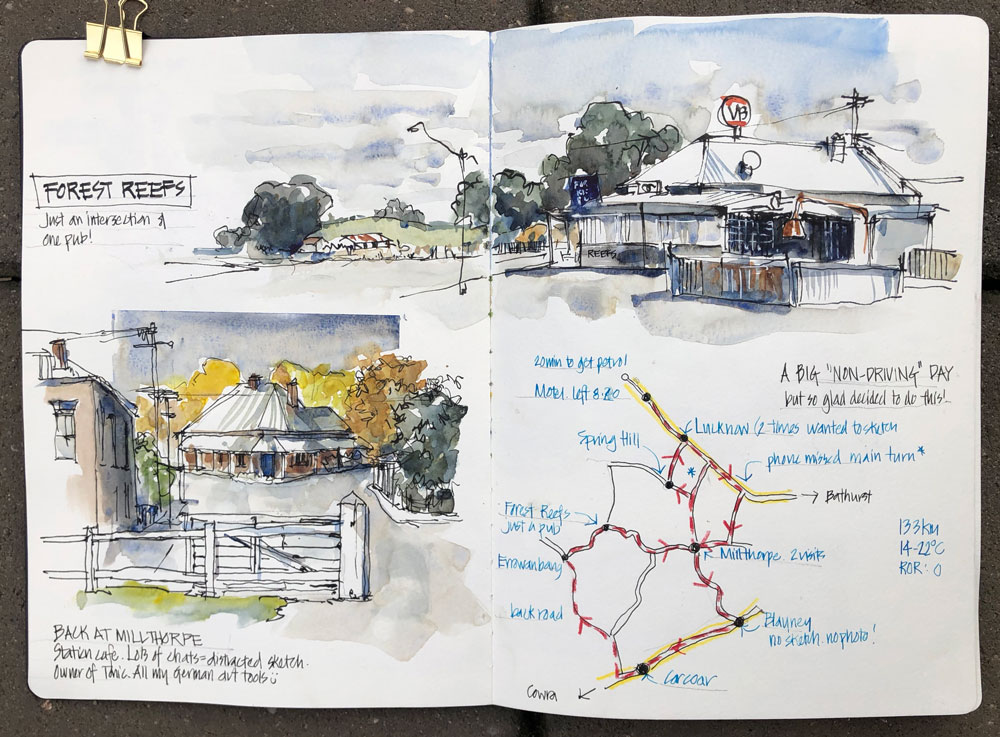 FOREST REEFS
Just an intersection &
one pub!
VB
FOR
REEFS
BACK AT MILLTHORPE
Station cafe. Lots of chats = distracted sketch.
Owner of Tonic. All my German art tools
20min to get petrol
Motel left 8:20
A BIG "NON-DRIVING" DAY
but so glad decided to do this!
Lucknow (2 times wanted to sketch
Spring Hill
phone missed main turn*
*
→ Bathurst
Forest Reefs
Just a pub
Errowanbang
Millthorpe 2 visits
133km
14-22°C
ROR: 0
back road
Blayney
no sketch. no photo!
Carcoar
Cowra